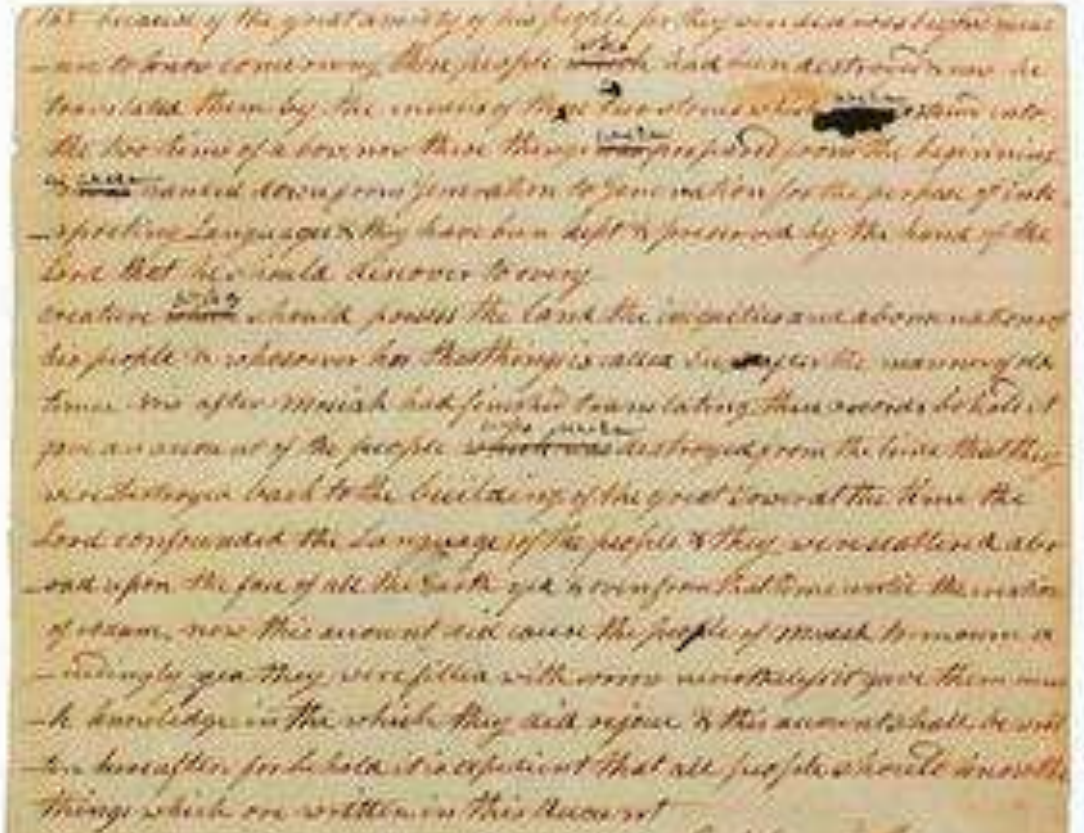 because of the great anxiety of his people for they were desirous beyond meas
-ure to know concerning those people who which had been destroyed & now he
translated them by the means of those two stones which were into
the two rims of a bow now these things were was prepared from the beginning
& were handed down from generation to generation for the purpose of inte
-rpreting Languages & they have been kept & preserved by the hand of the
Lord that he should discover to every
creature who which should possess the land the iniquities and abominations of
his people & whosoever has these things is called Seer after the manner of old
times now after Mosiah had finished translating these records behold it
gave an account of the people who were which was destroyed from the time that they
were destroyed back to the building of the great tower at the time the
Lord confounded the Language of the people & they were scattered abr
-oad upon the face of all the Earth yea & even from that time until the creation
of Adam, now this account did cause the people of Mosiah to mourn ex
-ceedingly yea they were filled with sorrow nevertheless it gave them muc
-h knowledge in the which they did rejoice & this account shall be writ
-ten hereafter for behold it is expedient that all people should know the
things which are written in this account